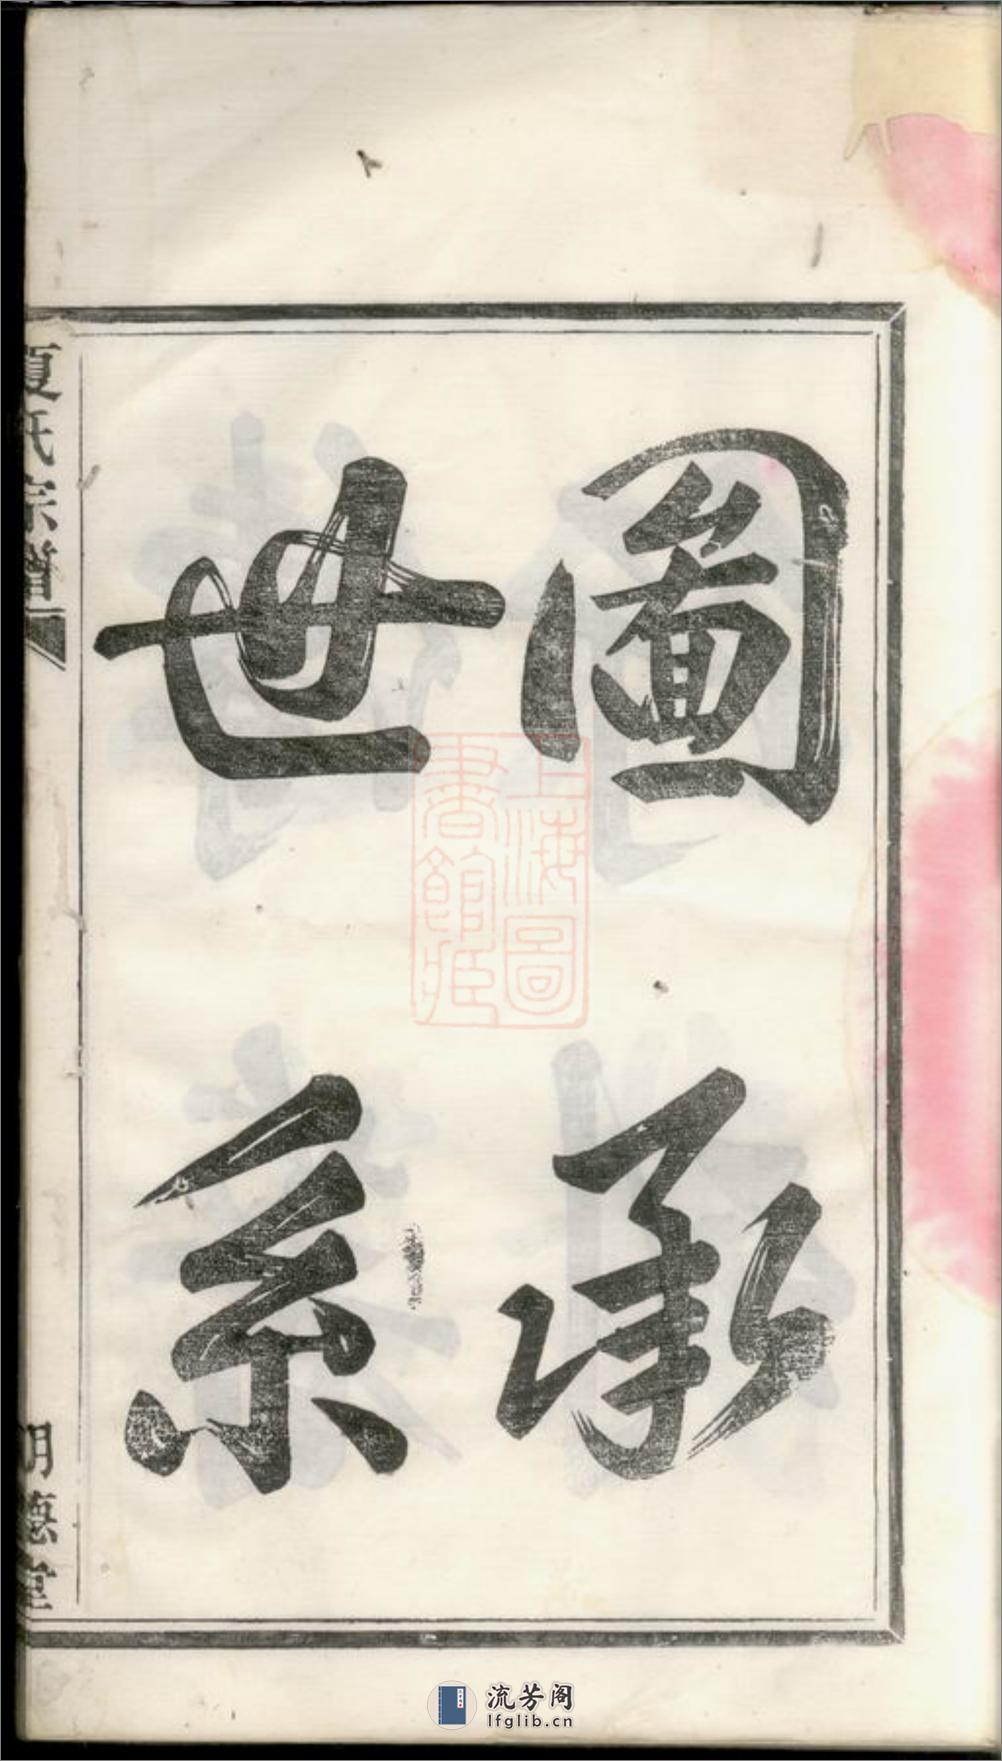 圖承
世系
氏宗譜
明德堂
上海圖
書館藏
流芳阁
lfglib.cn